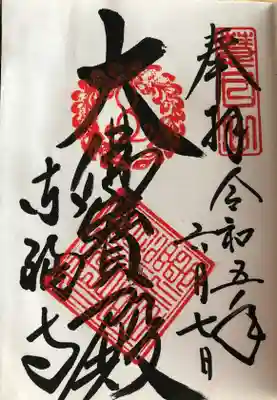 奉拝
令和五年
六月七日
大佛寶殿
東福寺